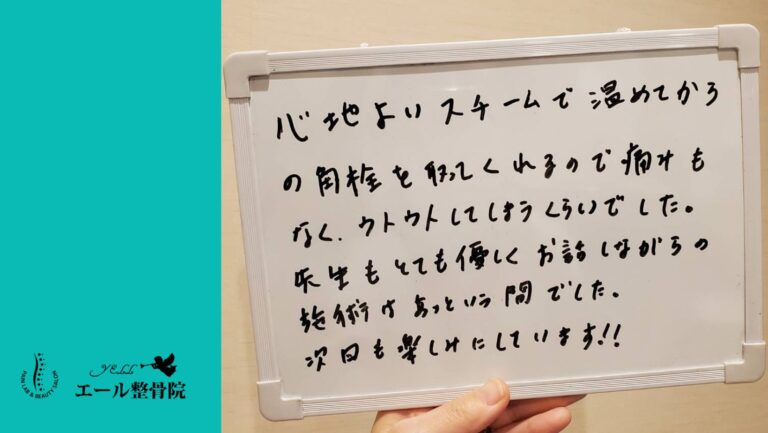 心地よいスチームで温めてから
の角栓を取ってくれるので痛みも
なく、ウトウトしてしまうくらいでした。
先生もとても優しくお話しながらの
施術はあっという間でした。
次回も楽しみにしています!!
PAIN LAB & BEAUTY SALON
エール整骨院